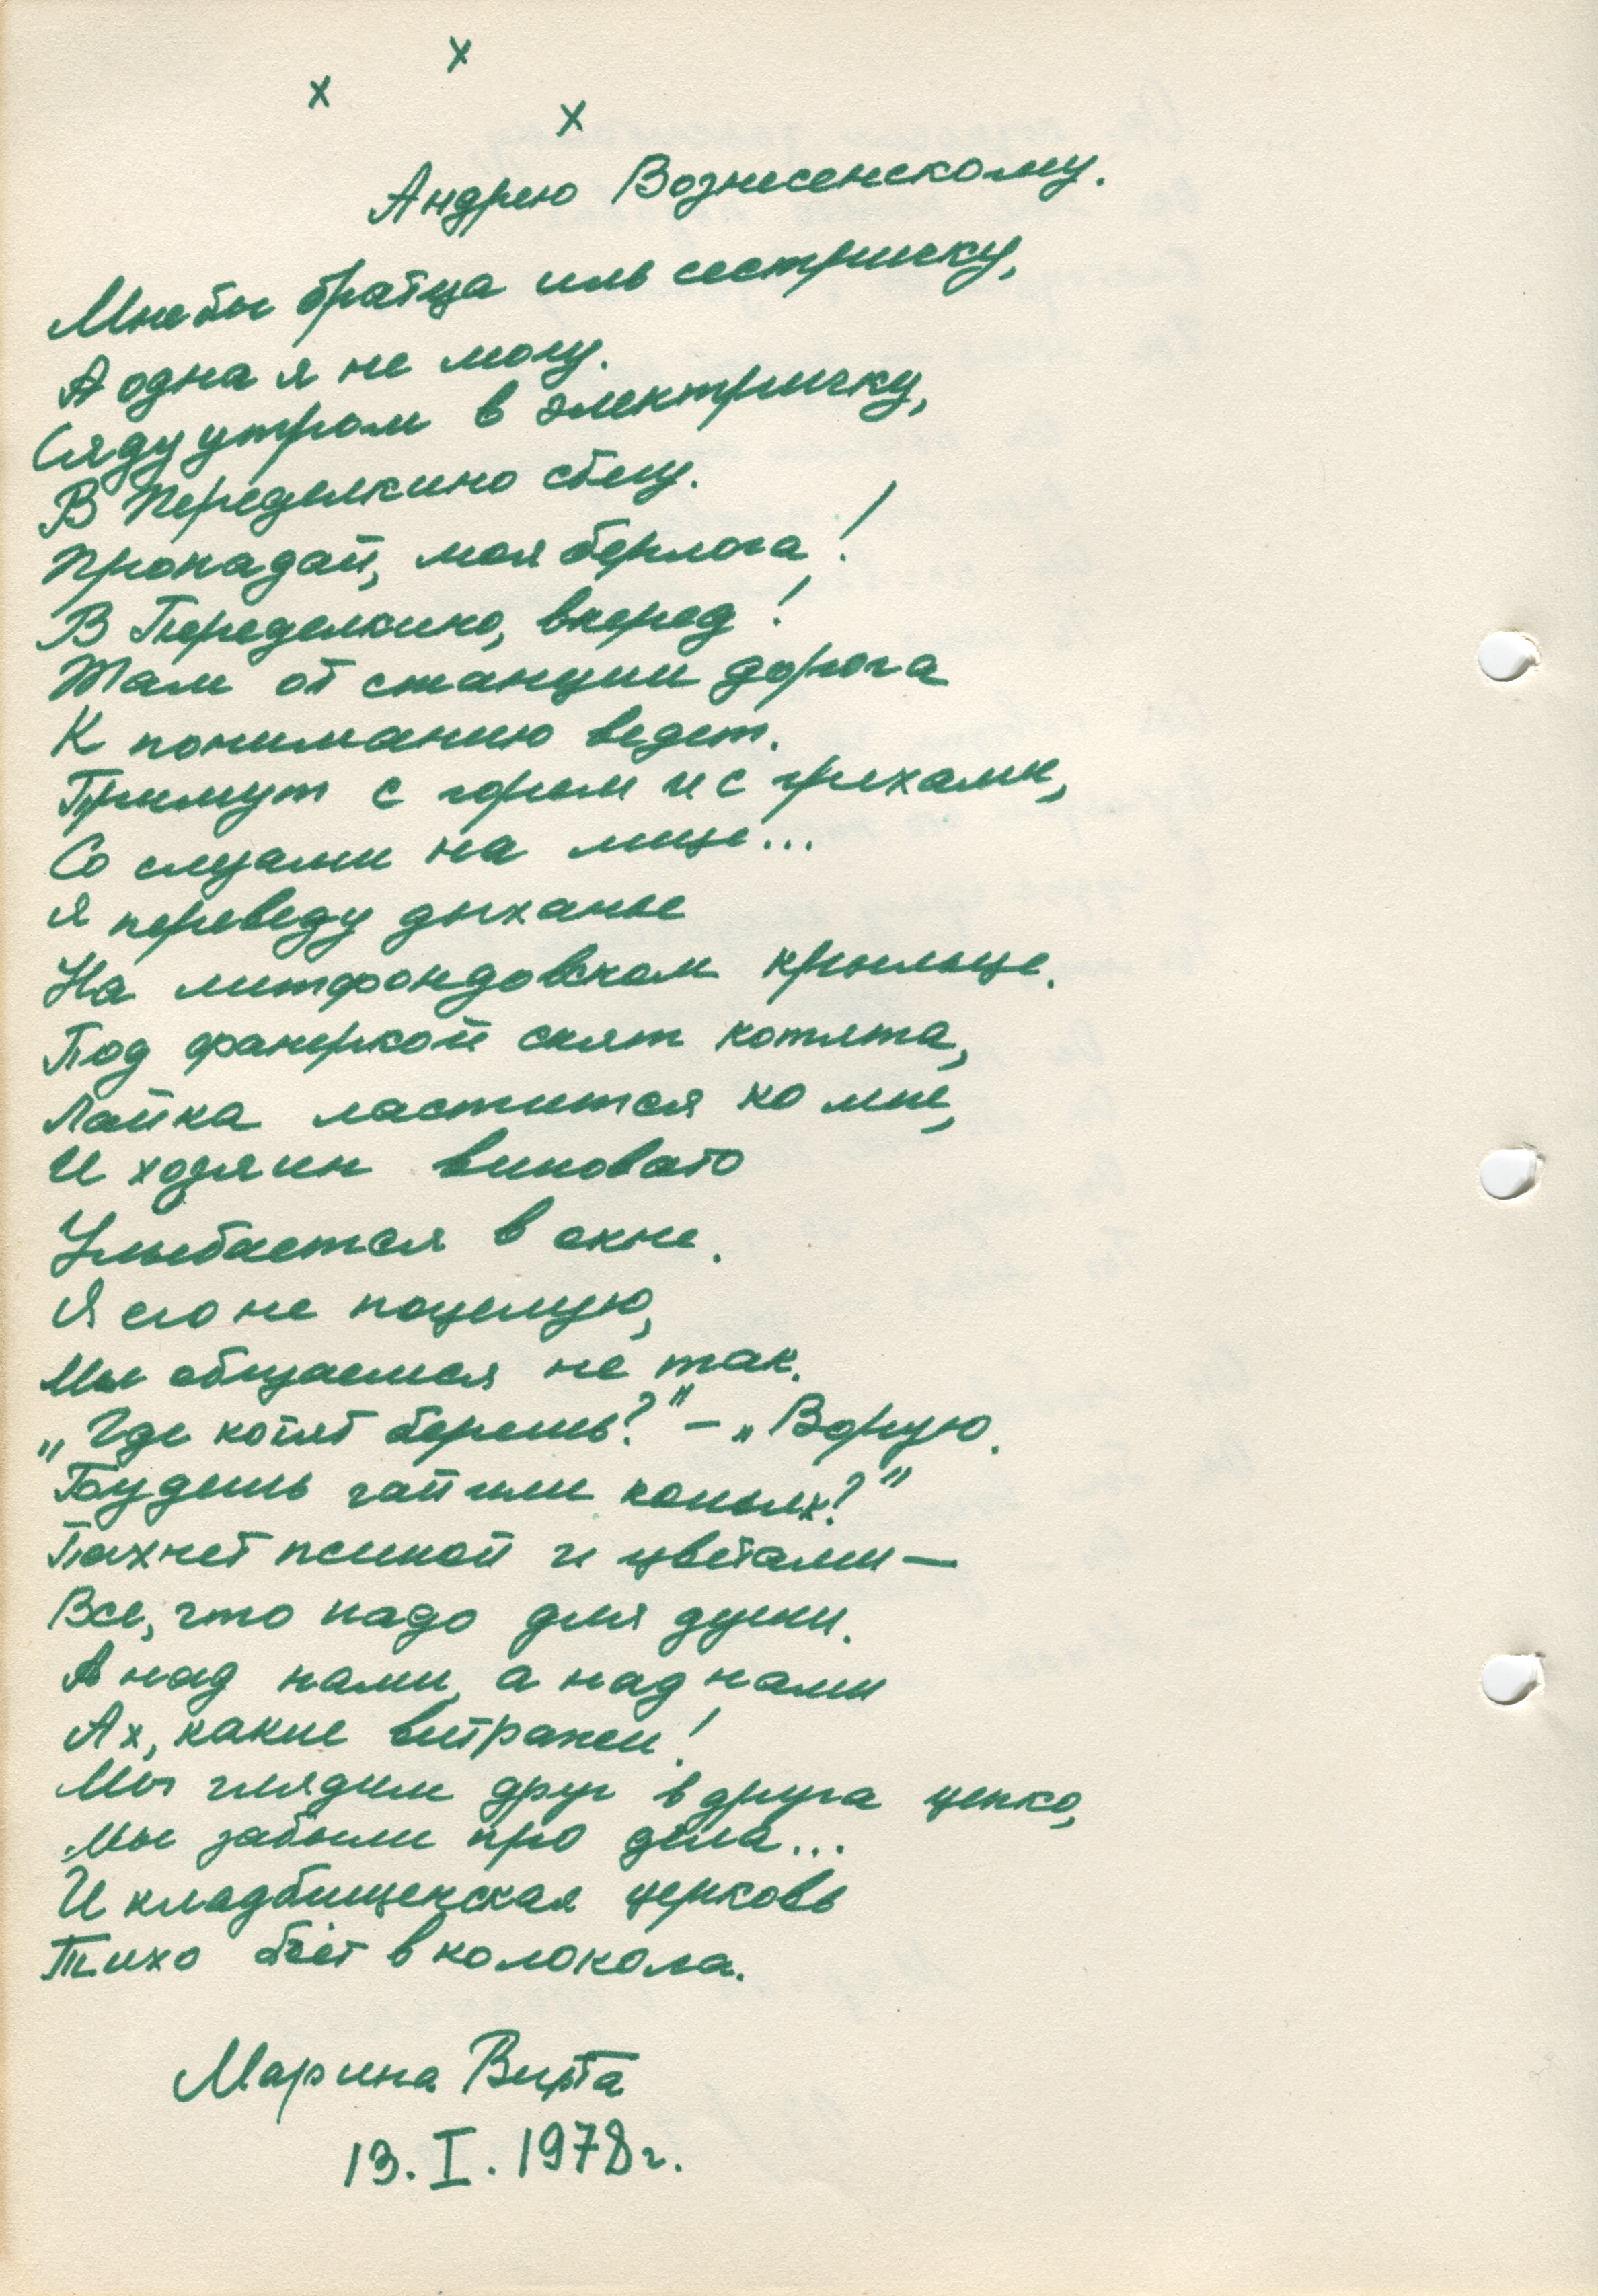 х х х
Андрею Вознесенскому.
Мне бы братца иль сестричку,
А одна я не могу.
Сяду утром в электричку,
В Переделкино сбегу.
Пропадай, моя берлога!
В Переделкино, вперед!
Там от станции дорога
К пониманию ведет.
Примут с горем и с грехами,
Со слезами на лице...
Я переведу дыханье
На литфондовском крыльце.
Под фанеркой спят котята,
Лайка ластится ко мне,
И хозяин виновато
Улыбается в окне.
Я его не поцелую,
Мы общаемся не так.
„Где котят берешь?" – „Ворую.
Будешь чай или коньяк?"
Пахнет псиной и цветами –
Все, что надо для души.
А над нами, а над нами
Ах, какие витражи!
Мы глядим друг в друга цепко,
Мы забыли про дела...
И кладбищенская церковь
Тихо бьёт в колокола.
Марина Вирта
13. I. 1978 г.